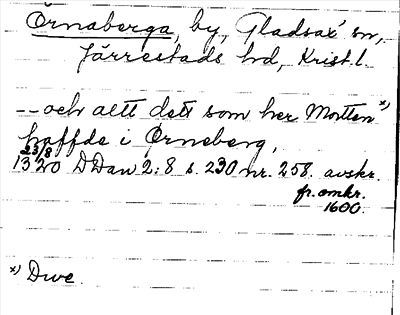 Örnaberga, by, Gladsax' sn,
Järrestads hd, Krist.l.
-- och altt dett som her Mortten x)
haffde i Ørneberg,
23/8
1320 DDan 2:8 s. 230 nr. 258. avskr.
fr. omkr.
1600.
x) Due.